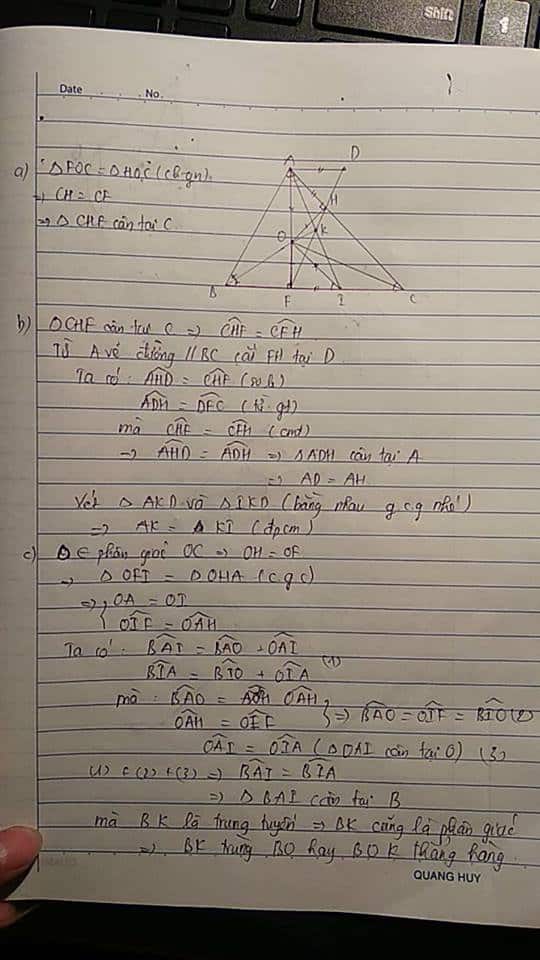 Shift
1
Date No.
a) ΔFOC = ΔHOC (ch-gn)
⇒ CH = CF
⇒ Δ CHF cân tại C
A D H O K B F I C
b) ΔCHF cân tại C ⇒ CHF̂ = CFĤ
Từ A vẽ đường // BC cắt FH tại D
Ta có: AHD̂ = CHF̂
ADĤ = DFĈ
mà CHF̂ = CFĤ (cmt)
⇒ AHD̂ = ADĤ ⇒ ΔADH cân tại A
⇒ AD = AH
Xét Δ AKD và ΔIKD (bằng nhau g c g nhé)
⇒ AK = KI (đpcm)
c) O ∈ phân giác OC ⇒ OH = OF
⇒ Δ OFI = ΔOHA (c g c)
⇒ { OA = OI
OIF̂ = OAĤ
Ta có: BAÎ = BAÔ + OAÎ
BIÂ = BIÔ + OIÂ (1)
mà: BAÔ = OAĤ
OAĤ = OIF̂ } ⇒ BAÔ = OIF̂ = BIÔ (2)
OAÎ = OIÂ (ΔOAI cân tại O) (3)
(1) + (2) + (3) ⇒ BAÎ = BIÂ
⇒ Δ BAI cân tại B
mà BK là trung tuyến ⇒ BK cũng là phân giác
⇒ BK trùng BO hay B O K thẳng hàng.
QUANG HUY